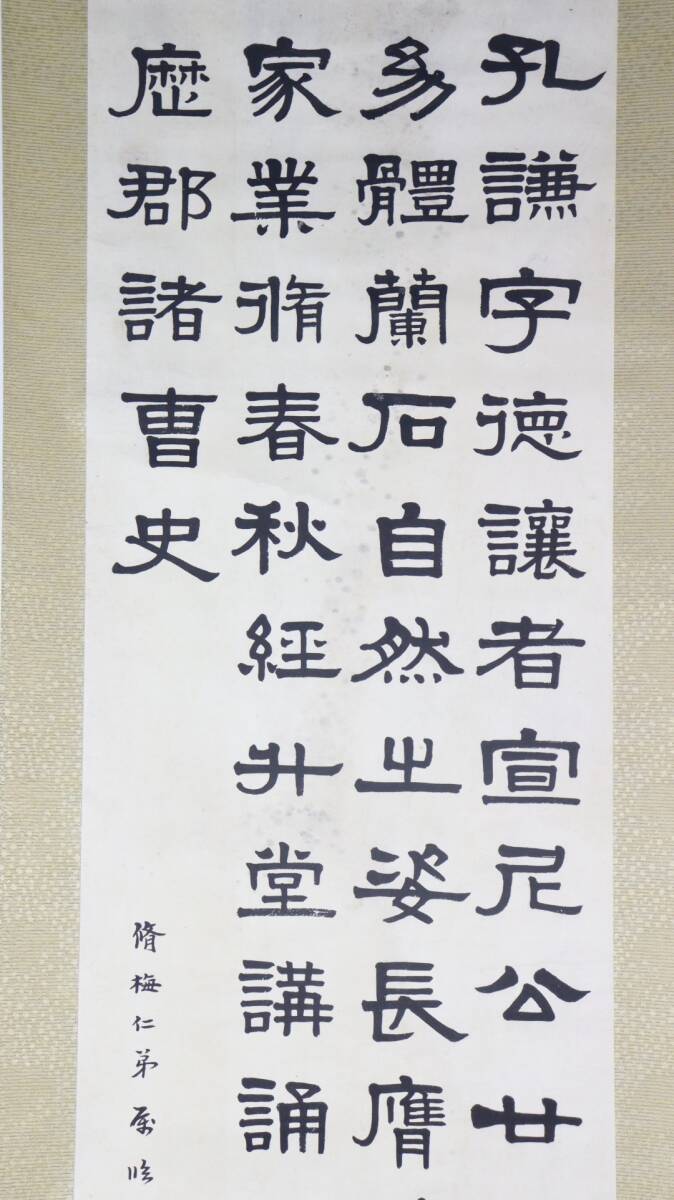 孔謙字德讓者宣尼公廿
幼體蘭石自然之姿長膺
家業脩春秋經升堂講誦
歷郡諸曹史
脩梅仁弟屬臨